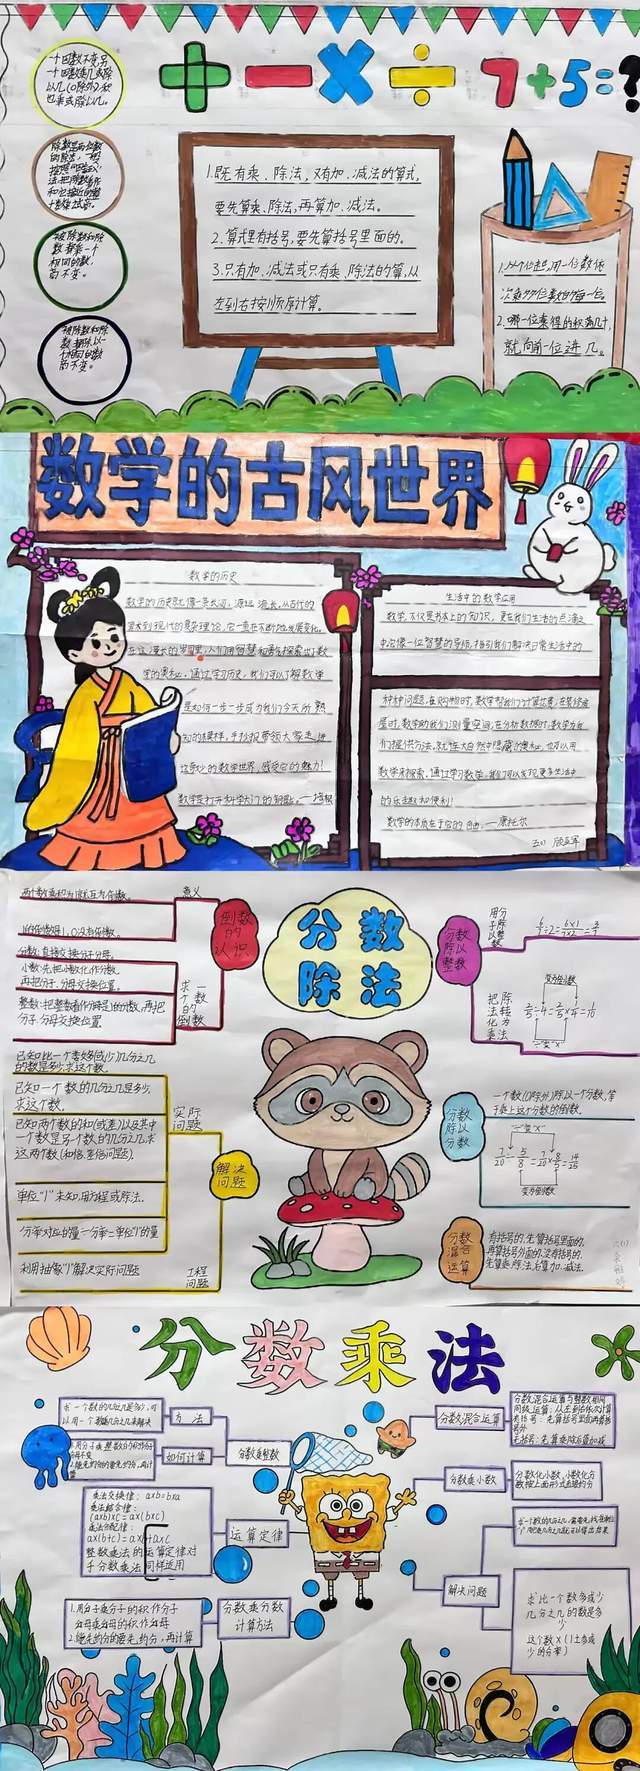 一个因数不变,另
一个因数乘几或除
以几(0除外),积
也乘或除以几。
被除数和除
数都乘一个
相同的数,
商不变。
被除数和除
数都除以一
个相同的数
商不变。
7+5=?
1.既有乘、除法,又有加、减法的算式,
要先算乘、除法,再算加、减法。
2.算式里有括号,要先算括号里面的。
3.只有加、减法或只有乘、除法的算,从
左到右按顺序计算。
1.从个位起,用一位数依
次乘多位数的每一位。
2.哪一位乘得的积满几十,
就向前一位进几。
数学的古风世界
数学的历史
数学的历史就像一条长河,源远流长,从古代的
到现代的复杂理论,它一直在不断地发展变化。
在这漫长的岁月里,人们用智慧和勇气探索出了数
学的奥秘,通过学习历史,我们可以了解数学
是如何一步一步成为我们今天所熟
知的模样,手抄报带领大家走进
这奇妙的数学世界,感受它的魅力!
数学是打开科学大门的钥匙。——培根
生活中的数学应用
数学,不仅是书本上的知识,更在我们生活的点滴之
中,它像一位智慧的导师,指引我们解决日常生活中的
种种问题,在购物时,数学帮我们计算优惠;在装修房
屋时,数学助我们测量空间;在分析数据时,数学为我
们提供方法,就连大自然中隐藏的奥秘,也可以用
数学来探索,通过学习数学,我们可以发现更多生活中
的乐趣和便利!
数学的本质在于它的自由。——康托尔
分数
除法
倒数
的
认识
意义
两个数乘积为1就互为倒数。
1的倒数是1,0没有倒数。
求一个数的倒数
分数:直接交换分子分母。
小数:先把小数化作分数,
再把分子、分母交换位置。
整数:把整数看作分母是1的分数,再把
分子、分母交换位置。
解决
问题
实际
问题
已知比一个数多(或少)几分之几
的数是多少,求这个数。
已知一个数的几分之几是多少,
求这个数。
已知两个数的和(或差)以及其中
一个数是另一个数的几分之几,求
这两个数(和倍、差倍问题)。
单位“1”未知,用方程或除法。
分率对应的量÷分率=单位“1”的量
工程
问题
利用抽象“1”解决实际问题
分数
除以
整数
用分子除以整数
把除法转化为乘法
变为倒数
2/5÷4=2/5×1/4=1/10
“÷”变“×”
分数
除以
分数
一个数(0除外)除以一个分数,等
于乘上这个分数的倒数。
“÷”变“×”
7/20÷5/8=7/20×8/5=14/25
变为倒数
分数
混合
运算
有括号的,先算括号里面的,
再算括号外面的,没有括号的,
先算乘、除法,后算加、减法。
分数乘法
方法
求一个数的几分之几是多少,可
以用一个数乘几分之几来解决
如何计算
分数乘整数
运算定律
乘法交换律:a×b=b×a
乘法结合律:
(a×b)×c=a×(b×c)
乘法分配律:
a×(b+c)=a×b+a×c
整数乘法的运算定律对
于分数乘法同样适用
分数乘分数
计算方法
1.用分子乘分子的积作分子
分母乘分母的积作分母
2.能先约分的要先约分,再计算
分数混合运算
分数混合运算与整数相同
同级运算:从左到右依次计算
有括号:先算括号里面再算括
号外
无括号:先算乘除后算加减
分数乘小数
分数化小数,小数化分
解决问题
求比一个数多或少
几分之几的数是多
少
这个数×(1±多或
少的分率)